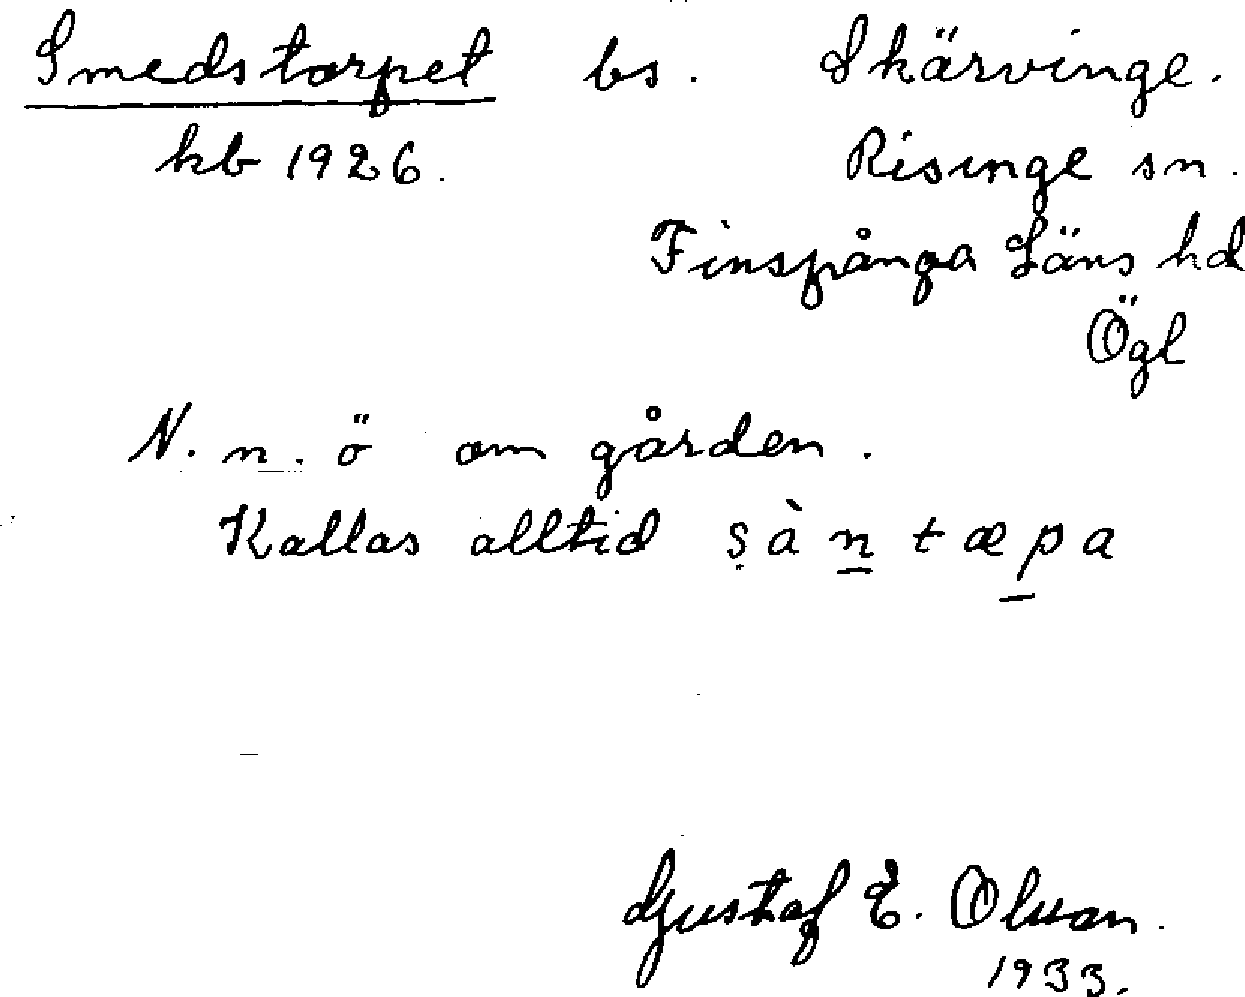 Smedstorpet bs. Skärvinge.
kb 1926. Risinge sn.
Finspånga Läns hd
Ögl
N. n. ö om gården.
Kallas alltid ṣàn̲tæp̲a
Gustaf E. Olson.
1933.